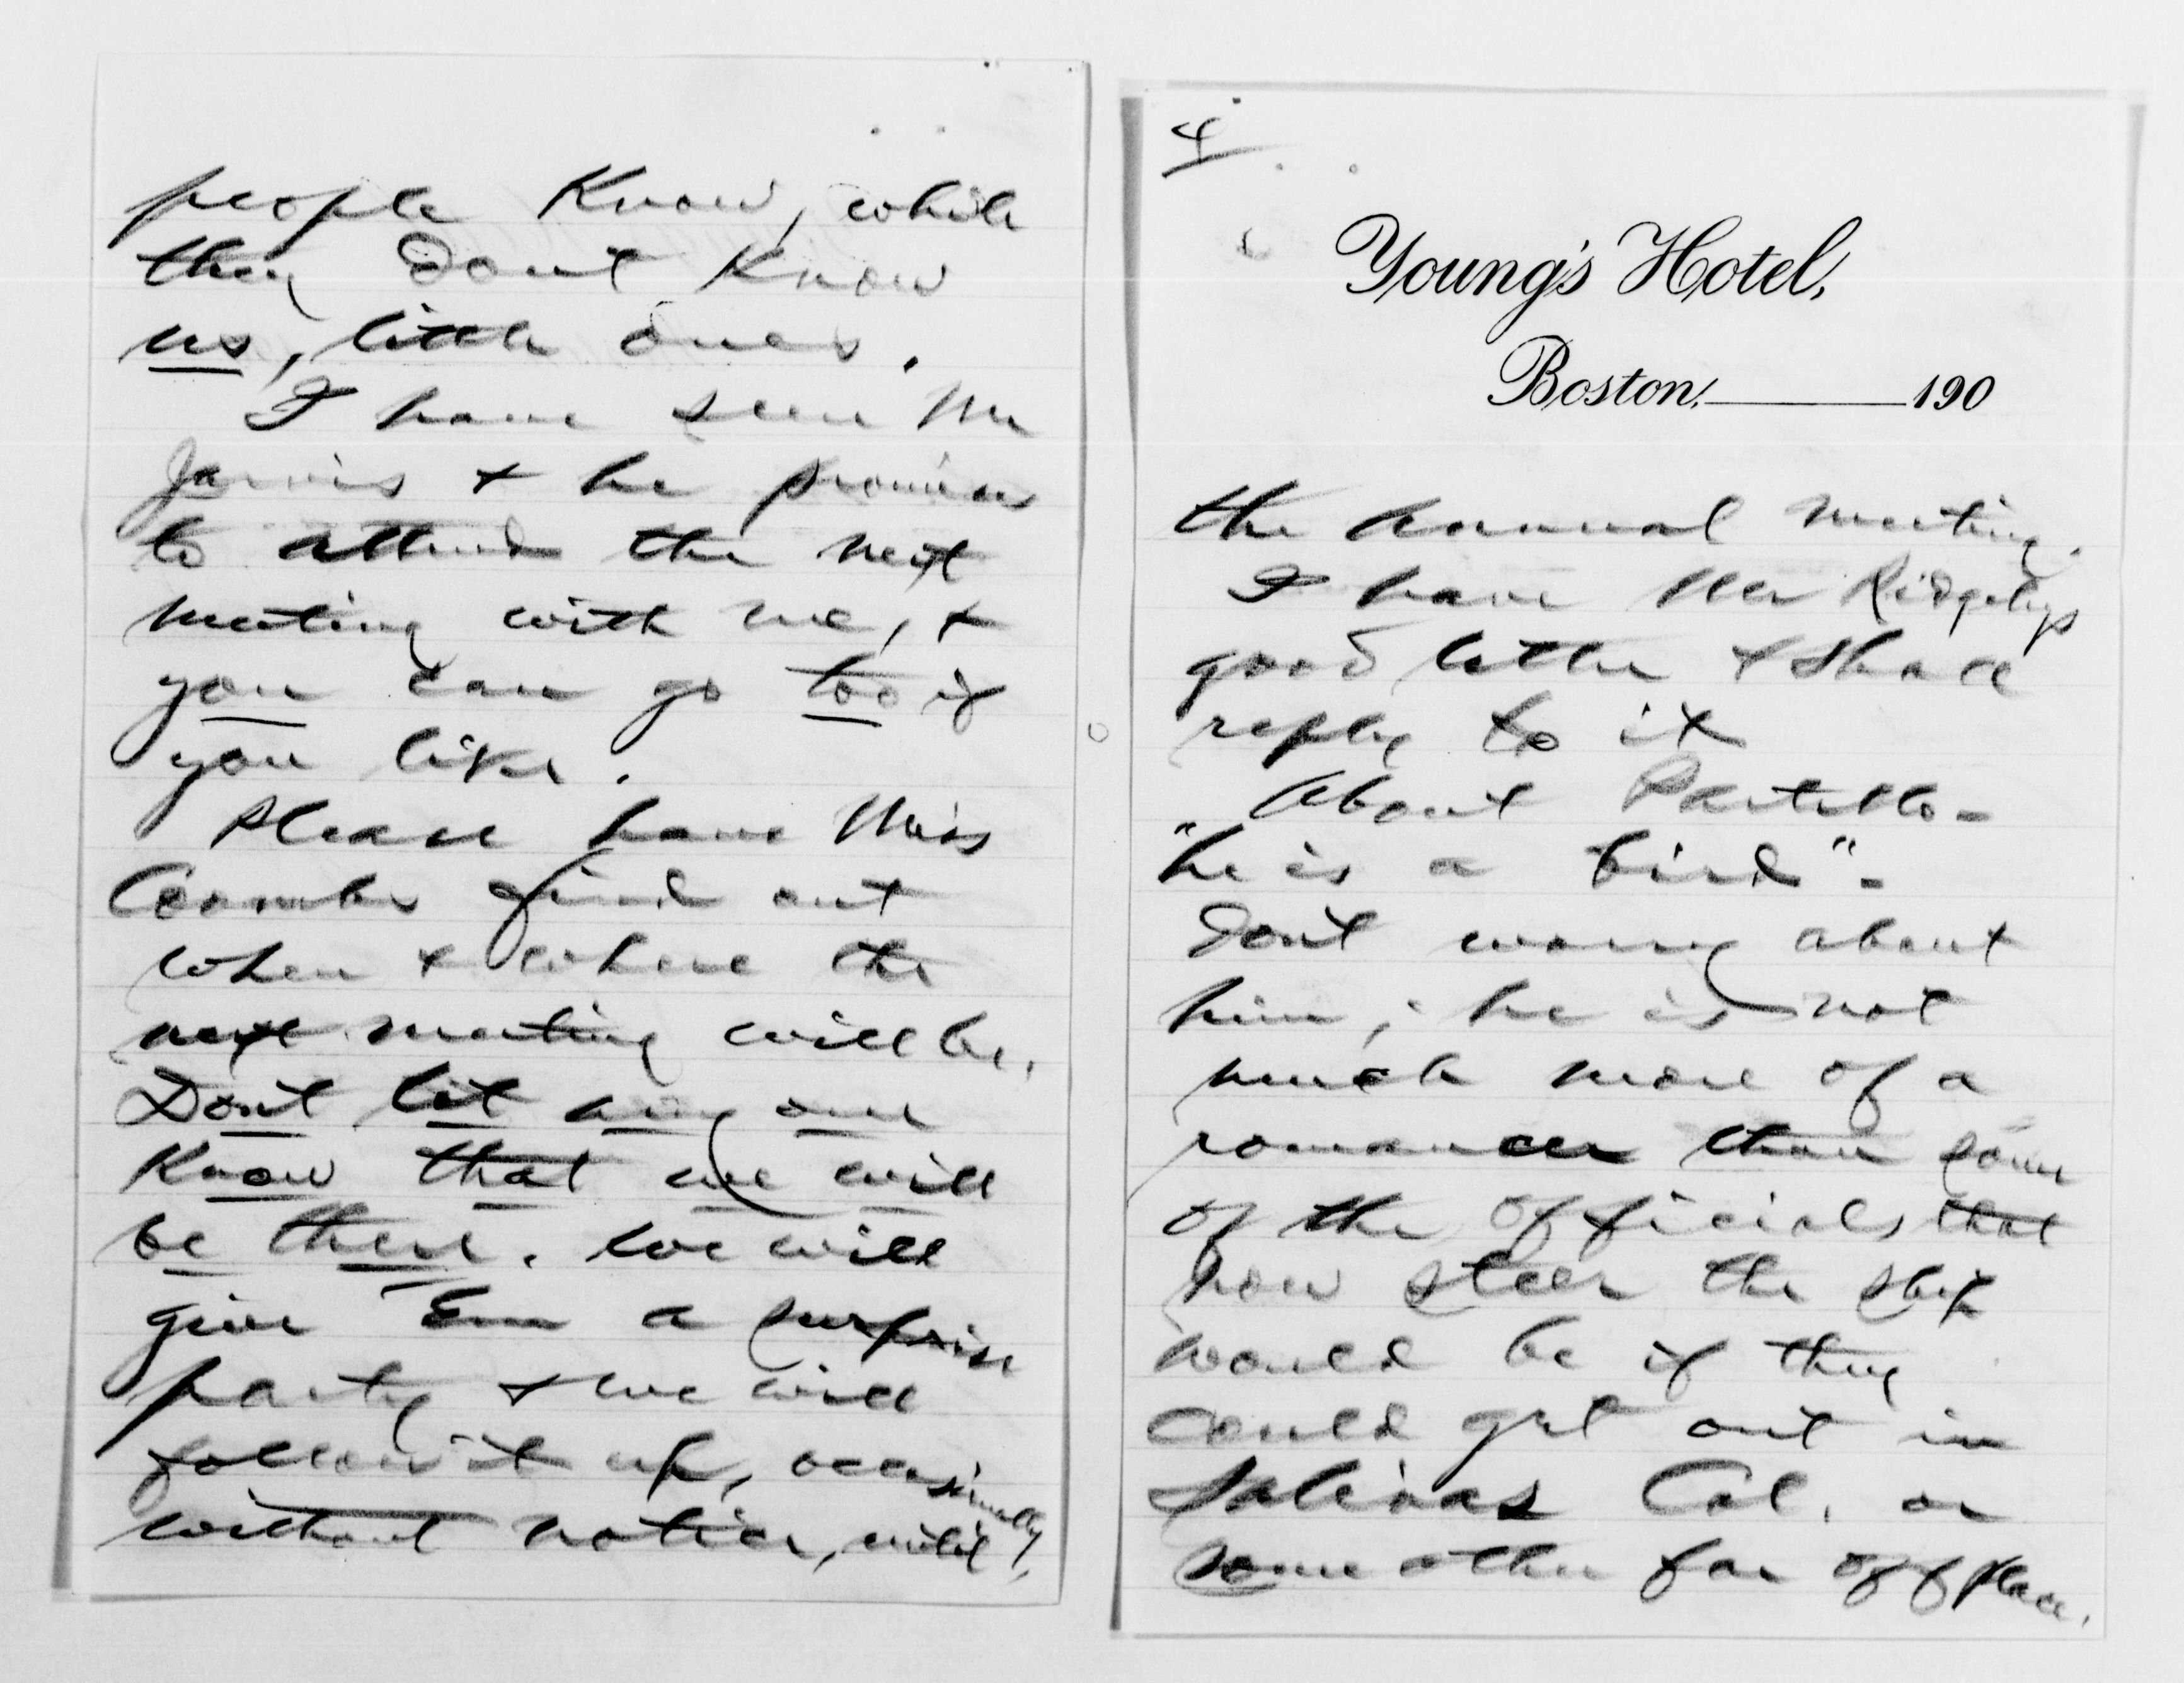 people Know, while
they Dont Know
us, little ones.
I have seen Mr
Jarvis + he promises
to attend the next
meeting with me, +
you can go too if
you like.
Please have Miss
Coombs find out
when + where the
next meeting will be.
Dont let any one
Know that we will
be there. We will
give 'Em a surprise
party + we will
follow it up, occasionally,
without notice, until,
4
Young's Hotel,
Boston, 190
the Annual meeting.
I have Mr Ridgelys
good letter + shall
reply to it
About Partello-
"he is a bird"-
Dont worry about
him; he is not
much more of a
romancer than some
of the officials that
now steer the ship
would be if they
could get out in
Salinas Cal. or
some other far off place.